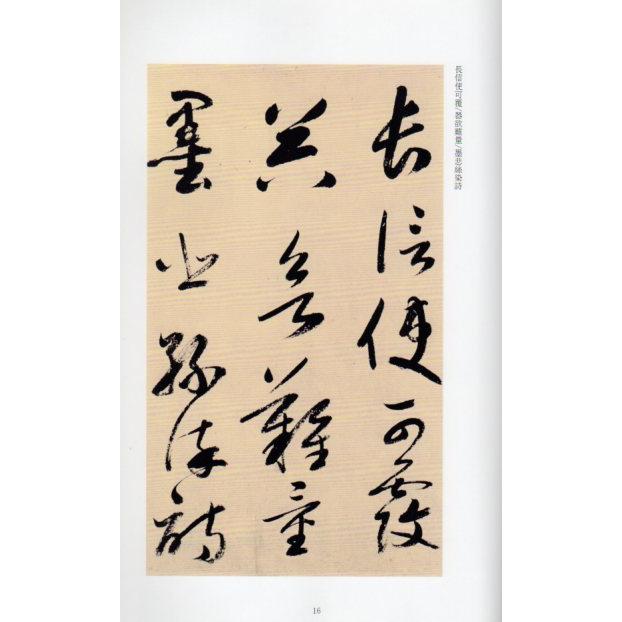 長信使可覆/器欲難量/墨悲絲染詩
長信使可覆
器欲難量
墨悲絲染詩
16